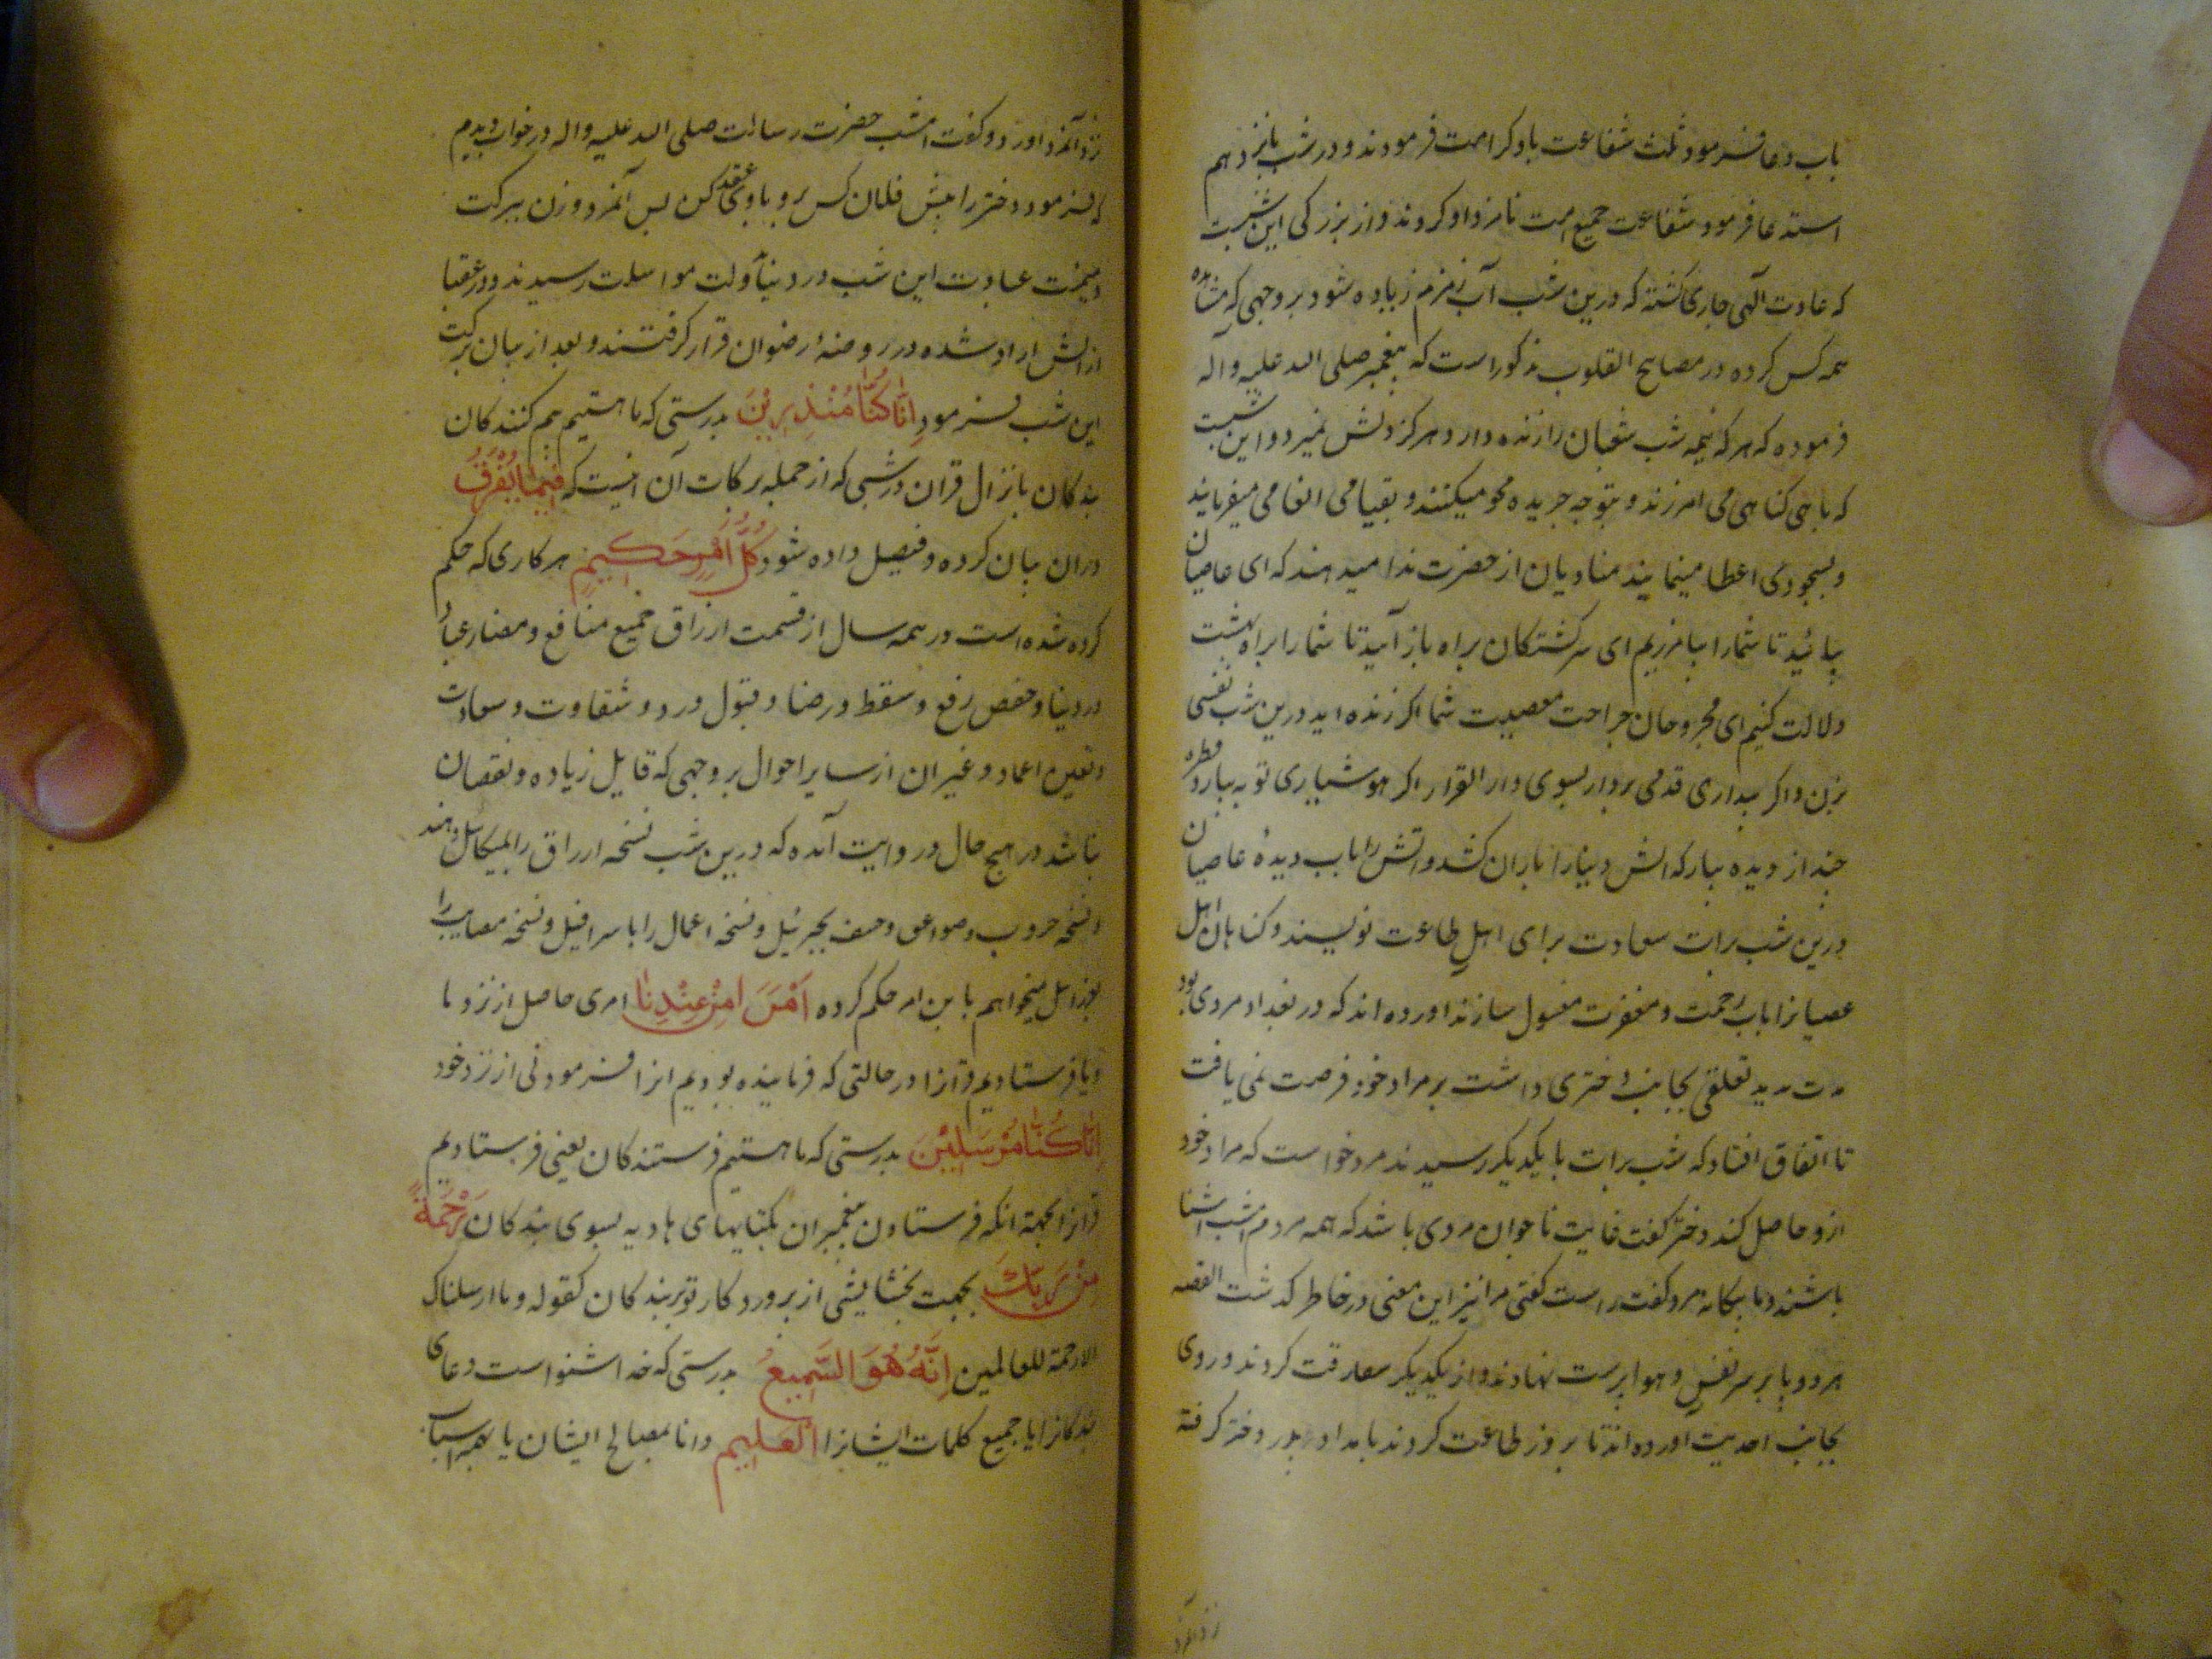 باب دعا فرمود ثلث شفاعت باو کرامت فرمودند و در شب پانزدهم
استدعا فرمود شفاعت جمیع امت نامزد او کردند و از بزرکی این شبست
که عادت الهی جاری کشته که درین شب آب زمزم زیاده شود بر وجهی که مشاهده
همه کس کرده در مصابیح القلوب مذکور است که پیغمبر صلی الله علیه و آله
فرموده که هر که نیمه شب شعبان را زنده دارد هرکز دلش نمیرد و این شبیست
که باهی کناهی می امرزند و بتوجه جریده محو میکنند و بقیامی انعامی میفرمایند
و بسجودی اعطا مینمایند منادیان از حضرت ندا میدهند که ای عاصیان
بیائید تا شما را بیامرزیم ای سرکشتکان براه باز آیید تا شما را براه بهشت
دلالت کنیم ای مجروحان جراحت معصیت شما اکر زنده اید درین شب نفسی
بزن و اکر بیداری قدمی بردار بسوی دار القرار اکر هوشیاری توبه بیار و قطره
چند از دیده ببار که اتش دنیا را باران کشد و اتش را باب دیدهٔ عاصیان
درین شب برات سعادت برای اهل طاعت نویسند و کناهان اهل
عصیانرا باب رحمت و مغفرت مغسول سازند اورده اند که در بغداد مردی بود
مدت مدید تعلقی بجانب دختری داشت بر مراد خود فرصت نمی یافت
تا اتفاق افتاد که شب برات با یکدیکر رسیدند مرد خواست که مراد خود
ازو حاصل کند دختر کفت غایت ناجوان مردی باشد که همه مردم امشب اشنا
باشند و ما بیکانه مرد کفت راست کفتی مرا نیز این معنی در خاطر کذشت القصه
هر دو پا بر سر نفس و هوا پرست نهادند و از یکدیکر مفارقت کردند و روی
بجانب احدیت اورده اند تا بروز طاعت کردند بامداد پدر دختر کرفته
نزد آنمرد
نزد آنمرد اورد و کفت امشب حضرت رسالت صلی الله علیه و اله در خواب دیدم
که فرمود دختر را پیش فلان کس بر و با وی عقد کن پس آنمرد و زن ببرکت
و میمنت عبادت این شب در دنیا بدولت مواصلت رسیدند و در عقبا
از اتش ازاد شده در روضهٔ رضوان قرار کرفتند و بعد از بیان برکت
این شب فرمود اِنَّا کُنَّا مُنْذِرِیْنَ بدرستی که ما هستیم بیم کنندکان
بندکان بانزال قران در شبی که از جمله برکات آن اینست که فِیْهَا یُفْرَقُ
دران بیان کرده و فیصل داده شود کُلُّ اَمْرٍ حَکِیْمٍ هر کاری که حکم
کرده شده است در همه سال از قسمت ارزاق جمیع منافع و مضار عباد
در دنیا و خفض رفع و سقط و رضا و قبول و رد و شقاوت و سعادت
و تعین اعمار و غیر ان از سایر احوال بر وجهی که قابل زیاده و نقصان
نباشد در هیچ حال و در روایت آمده که درین شب نسخه ارزاق را بمیکائیل دهند
و نسخه حروب و صواعق و خسف بجبرئیل و نسخه اعمال را باسرافیل و نسخه مصایب را
بعزرائیل میخواهم باین امر حکم کرده اَمْرًا مِنْ عِنْدِنَا امری حاصل از نزد ما
و یا فرستادیم قرانرا در حالتی که فرماینده بودیم انرا فرمودنی از نزد خود
اِنَّا کُنَّا مُرْسَلِیْنَ بدرستی که ما هستیم فرستندکان یعنی فرستادیم
قرانرا بجهة انکه فرستادن پیغمبران بکتابهای هادیه بسوی بندکان رَحْمَةً
مِنْ رَبِّکَ بجهت بخشایشی از پروردکار تو بر بندکان کقوله و ما ارسلناک
الا رحمة للعالمین اِنَّهُ هُوَ السَّمِیعُ بدرستی که خدا شنواست دعای
بندکانرا یا جمیع کلمات ایشانرا الْعَلِیمُ دانا بمصالح ایشان یا بهمه اسباب